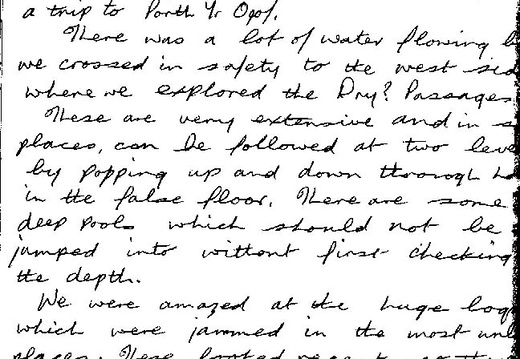 a trip to Porth Yr Ogof.
There was a lot of water flowing
we crossed in safety to the west
where we explored the Dry? Passages
These are verry extensive and in
places, can be followed at two
by popping up and down thorough
in the false floor. There are some
deep pools which should not be
jumped into without first checking
the depth.
We were amazed at the huge
which were jammed in the most
places. These